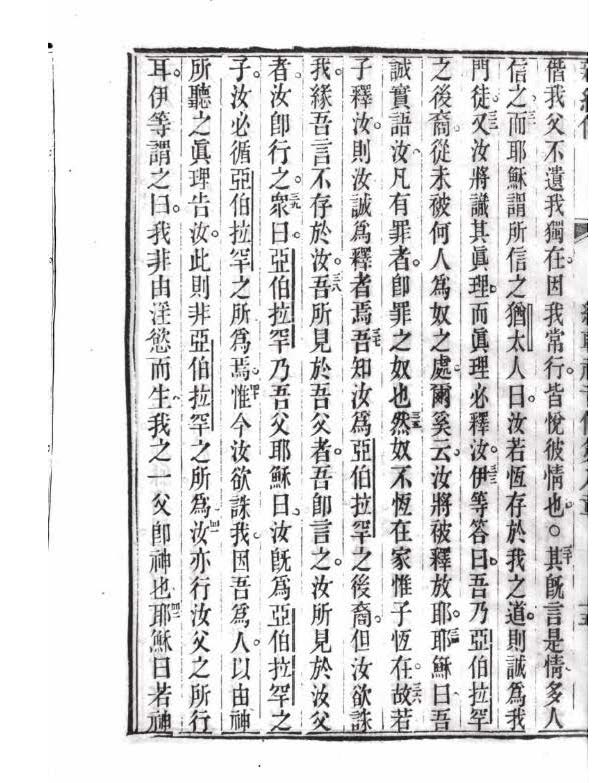 偕我父不遺我獨在因我常行皆悅彼情也○其既言是情多人
信之而耶穌謂所信之猶太人曰汝若恆存於我之道則誠爲我
門徒又汝將識其眞理而眞理必釋汝伊等答曰吾乃亞伯拉罕
之後裔從未被何人爲奴之處爾奚云汝將被釋放耶耶穌曰吾
誠實語汝凡有罪者卽罪之奴也然奴不恆在家惟子恆在故若
子釋汝則汝誠爲釋者焉吾知汝爲亞伯拉罕之後裔但汝欲誅
我緣吾言不存於汝吾所見於吾父者吾卽言之汝所見於汝父
者汝卽行之衆曰亞伯拉罕乃吾父耶穌曰汝旣爲亞伯拉罕之
子汝必循亞伯拉罕之所爲焉惟今汝欲誅我因吾爲人以由神
所聽之眞理告汝此則非亞伯拉罕之所爲汝亦行汝父之所行
耳伊等謂之曰我非由淫慾而生我之一父卽神也耶穌曰若神